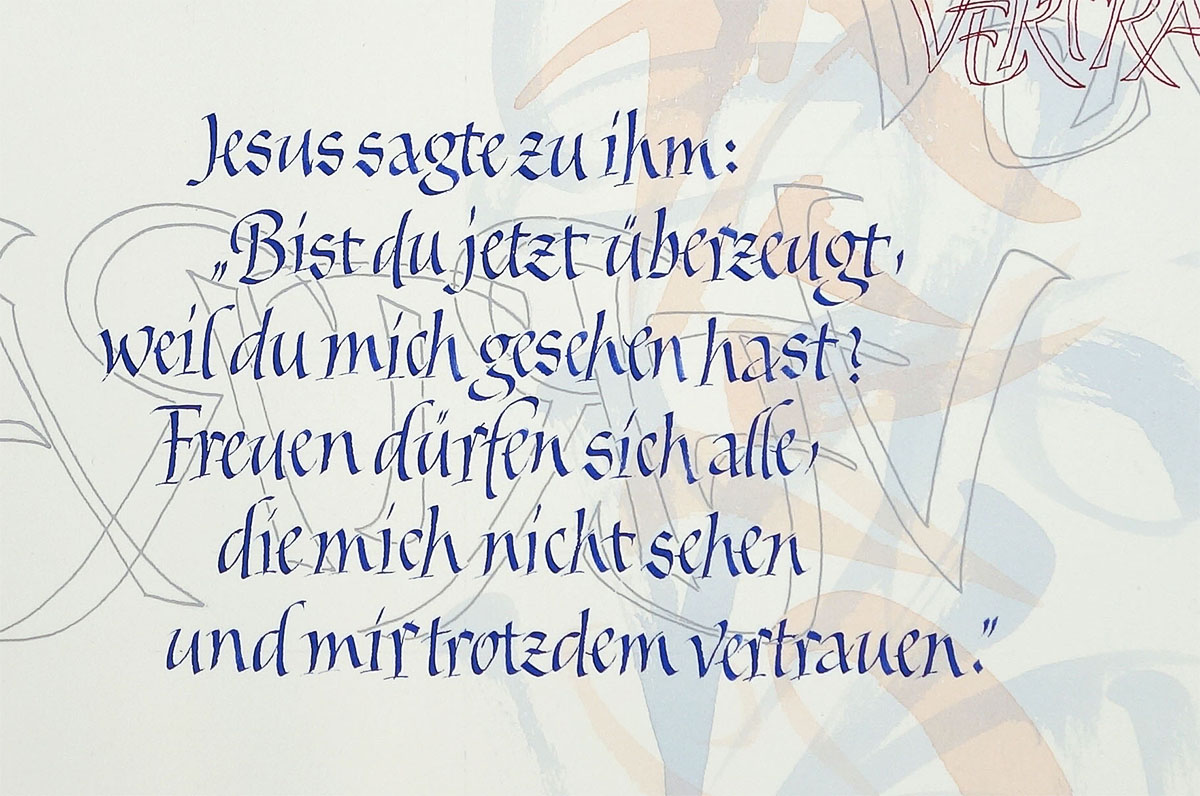 VERTRA
Jesus sagte zu ihm:
„Bist du jetzt überzeugt,
weil du mich gesehen hast?
Freuen dürfen sich alle,
die mich nicht sehen
und mir trotzdem vertrauen.”